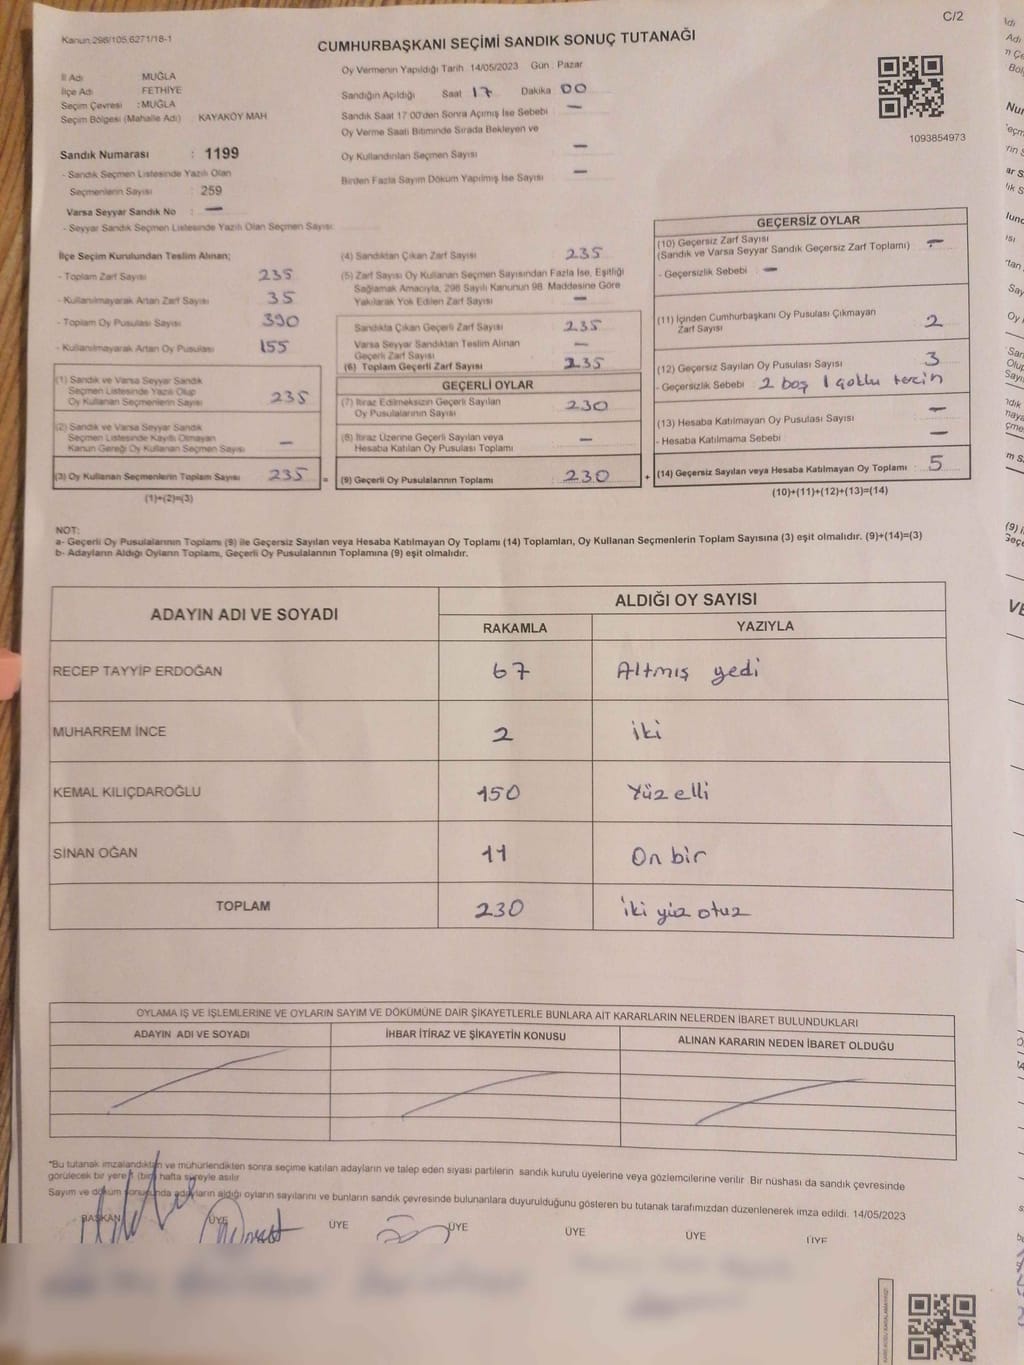 C/2
Kanun 298/105,6271/18-1
CUMHURBAŞKANI SEÇİMİ SANDIK SONUÇ TUTANAĞI
İl Adı MUĞLA
İlçe Adı FETHİYE
Seçim Çevresi : MUĞLA
Seçim Bölgesi (Mahalle Adı) KAYAKÖY MAH
Sandık Numarası : 1199
- Sandık Seçmen Listesinde Yazılı Olan
Seçmenlerin Sayısı : 259
Varsa Seyyar Sandık No : —
- Seyyar Sandık Seçmen Listesinde Yazılı Olan Seçmen Sayısı
Oy Vermenin Yapıldığı Tarih 14/05/2023 Gün : Pazar
Sandığın Açıldığı Saat 17 Dakika 00
Sandık Saat 17 00'den Sonra Açımış İse Sebebi —
Oy Verme Saati Bitiminde Sırada Bekleyen ve
Oy Kullandırılan Seçmen Sayısı —
Birden Fazla Sayım Döküm Yapılmış İse Sayısı —
1093854973
İlçe Seçim Kurulundan Teslim Alınan;
- Toplam Zarf Sayısı 235
- Kullanılmayarak Artan Zarf Sayısı 35
- Toplam Oy Pusulası Sayısı 390
- Kullanılmayarak Artan Oy Pusulası 155
(1) Sandık ve Varsa Seyyar Sandık
Seçmen Listesinde Yazılı Olup
Oy Kullanan Seçmenlerin Sayısı 235
(2) Sandık ve Varsa Seyyar Sandık
Seçmen Listesinde Kayıtlı Olmayan
Kanun Gereği Oy Kullanan Seçmen Sayısı —
(3) Oy Kullanan Seçmenlerin Toplam Sayısı 235 =
(1)+(2)=(3)
(4) Sandıktan Çıkan Zarf Sayısı 235
(5) Zarf Sayısı Oy Kullanan Seçmen Sayısından Fazla İse, Eşitliği
Sağlamak Amacıyla, 298 Sayılı Kanunun 98. Maddesine Göre
Yakılarak Yok Edilen Zarf Sayısı —
Sandıkta Çıkan Geçerli Zarf Sayısı 235
Varsa Seyyar Sandıktan Teslim Alınan
Geçerli Zarf Sayısı —
(6) Toplam Geçerli Zarf Sayısı 235
GEÇERLİ OYLAR
(7) İtiraz Edilmeksizin Geçerli Sayılan
Oy Pusulalarının Sayısı 230
(8) İtiraz Üzerine Geçerli Sayılan veya
Hesaba Katılan Oy Pusulası Toplamı —
(9) Geçerli Oy Pusulalarının Toplamı 230 +
GEÇERSİZ OYLAR
(10) Geçersiz Zarf Sayısı
(Sandık ve Varsa Seyyar Sandık Geçersiz Zarf Toplamı) —
- Geçersizlik Sebebi : —
(11) İçinden Cumhurbaşkanı Oy Pusulası Çıkmayan
Zarf Sayısı 2
(12) Geçersiz Sayılan Oy Pusulası Sayısı 3
- Geçersizlik Sebebi 2 boş 1 çoklu tercin
(13) Hesaba Katılmayan Oy Pusulası Sayısı —
- Hesaba Katılmama Sebebi —
(14) Geçersiz Sayılan veya Hesaba Katılmayan Oy Toplamı : 5
(10)+(11)+(12)+(13)=(14)
NOT:
a- Geçerli Oy Pusulalarının Toplamı (9) ile Geçersiz Sayılan veya Hesaba Katılmayan Oy Toplamı (14) Toplamları, Oy Kullanan Seçmenlerin Toplam Sayısına (3) eşit olmalıdır. (9)+(14)=(3)
b- Adayların Aldığı Oyların Toplamı, Geçerli Oy Pusulalarının Toplamına (9) eşit olmalıdır.
ADAYIN ADI VE SOYADI
ALDIĞI OY SAYISI
RAKAMLA YAZIYLA
RECEP TAYYİP ERDOĞAN 67 Altmış yedi
MUHARREM İNCE 2 iki
KEMAL KILIÇDAROĞLU 150 Yüz elli
SİNAN OĞAN 11 On bir
TOPLAM 230 iki yüz otuz
OYLAMA İŞ VE İŞLEMLERİNE VE OYLARIN SAYIM VE DÖKÜMÜNE DAİR ŞİKAYETLERLE BUNLARA AİT KARARLARIN NELERDEN İBARET BULUNDUKLARI
ADAYIN ADI VE SOYADI İHBAR İTİRAZ VE ŞİKAYETİN KONUSU ALINAN KARARIN NEDEN İBARET OLDUĞU
*Bu tutanak imzalandıktan ve mühürlendikten sonra seçime katılan adayların ve talep eden siyasi partilerin sandık kurulu üyelerine veya gözlemcilerine verilir Bir nüshası da sandık çevresinde
görülecek bir yere 1 (bir) hafta süreyle asılır
Sayım ve döküm sonucunda adayların aldığı oyların sayılarını ve bunların sandık çevresinde bulunanlara duyurulduğunu gösteren bu tutanak tarafımızdan düzenlenerek imza edildi. 14/05/2023
BAŞKAN ÜYE ÜYE ÜYE ÜYE ÜYE ÜYE